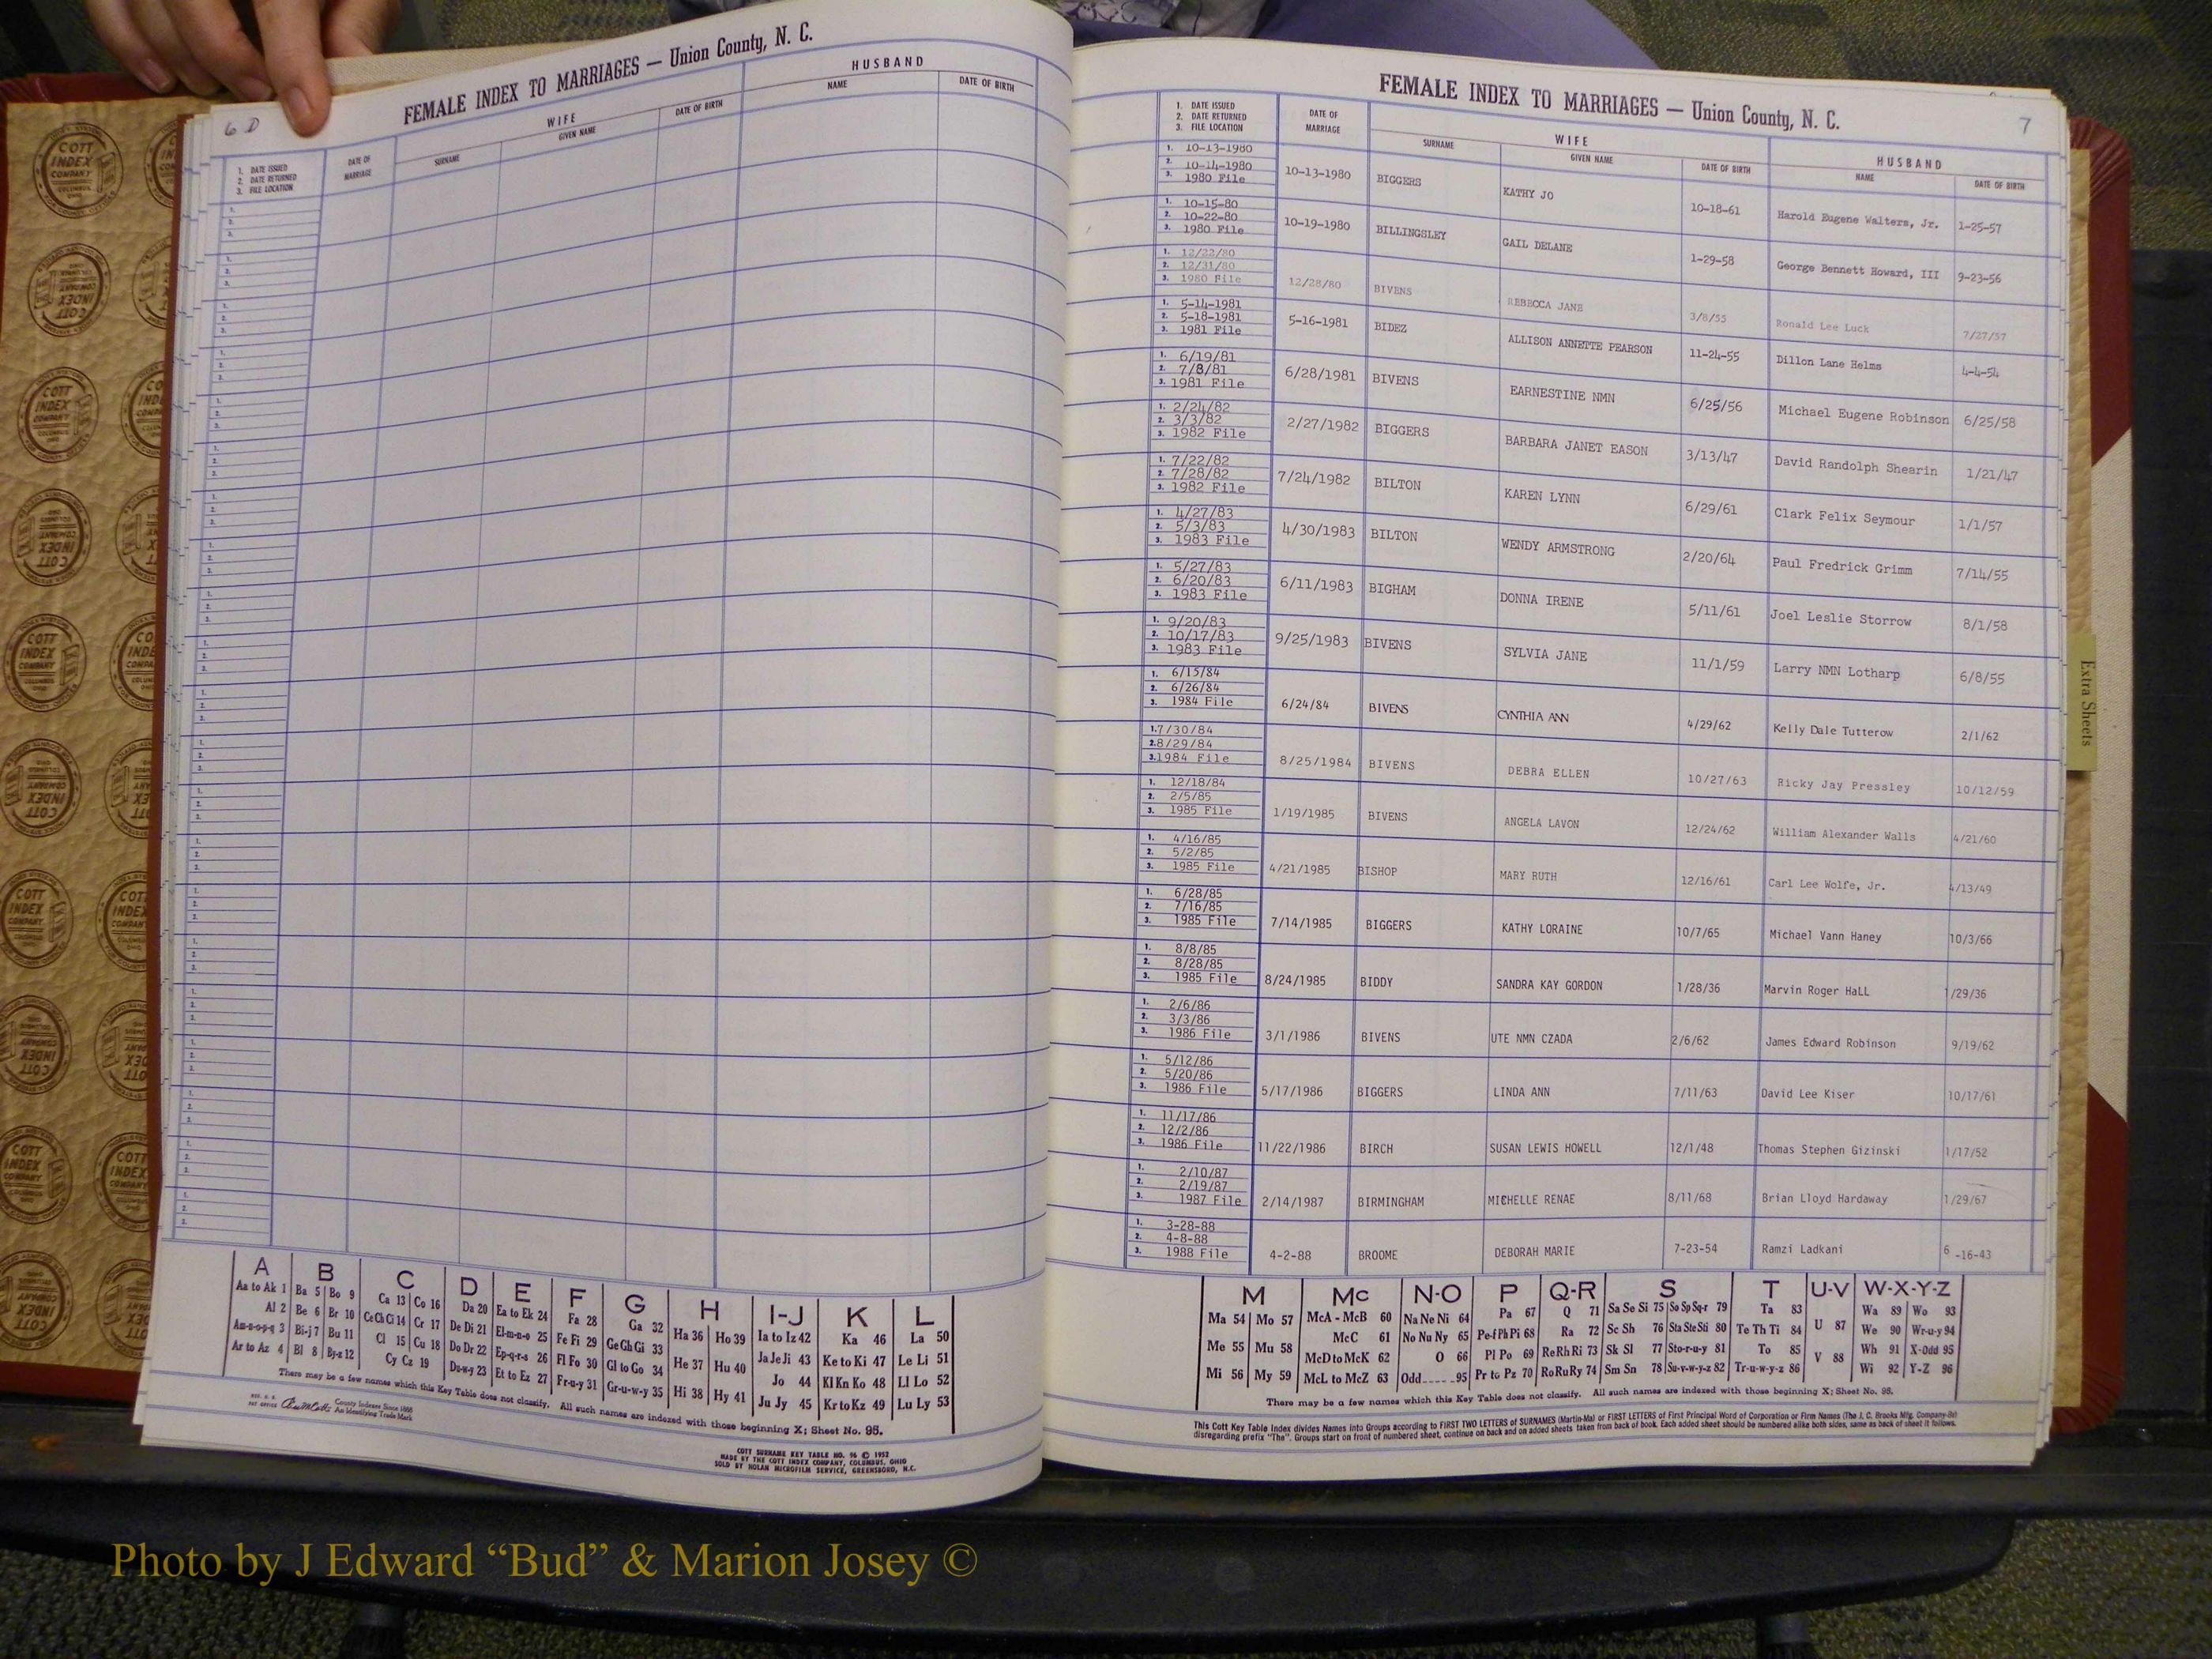 6 D
FEMALE INDEX TO MARRIAGES — Union County, N. C.
1. DATE ISSUED
2. DATE RETURNED
3. FILE LOCATION
DATE OF MARRIAGE
WIFE
SURNAME GIVEN NAME DATE OF BIRTH
HUSBAND
NAME DATE OF BIRTH
A
Aa to Ak 1
Al 2
Am-n-o-p-q 3
Ar to Az 4
B
Ba 5 Bo 9
Be 6 Br 10
Bi-j 7 Bu 11
Bl 8 By-z 12
C
Ca 13 Co 16
Ce Ch Ci 14 Cr 17
Cl 15 Cu 18
Cy Cz 19
D
Da 20
De Di 21
Do Dr 22
Du-w-y 23
E
Ea to Ek 24
El-m-n-o 25
Ep-q-r-s 26
Et to Ez 27
F
Fa 28
Fe Fi 29
Fl Fo 30
Fr-u-y 31
G
Ga 32
Ge Gh Gi 33
Gl to Go 34
Gr-u-w-y 35
H
Ha 36 Ho 39
He 37 Hu 40
Hi 38 Hy 41
I-J
Ia to Iz 42
Ja Je Ji 43
Jo 44
Ju Jy 45
K
Ka 46
Ke to Ki 47
Kl Kn Ko 48
Kr to Kz 49
L
La 50
Le Li 51
Ll Lo 52
Lu Ly 53
There may be a few names which this Key Table does not classify. All such names are indexed with those beginning X; Sheet No. 95.
County Indexes Since 1888
An Identifying Trade Mark
COTT SURNAME KEY TABLE NO. 96 © 1952
MADE BY THE COTT INDEX COMPANY, COLUMBUS, OHIO
SOLD BY NOLAN MICROFILM SERVICE, GREENSBORO, N.C.
FEMALE INDEX TO MARRIAGES — Union County, N. C.
7
1. DATE ISSUED
2. DATE RETURNED
3. FILE LOCATION
DATE OF MARRIAGE
WIFE
SURNAME GIVEN NAME DATE OF BIRTH
HUSBAND
NAME DATE OF BIRTH
1. 10-13-1980
2. 10-14-1980
3. 1980 File
10-13-1980 BIGGERS KATHY JO 10-18-61 Harold Eugene Walters, Jr. 1-25-57
1. 10-15-80
2. 10-22-80
3. 1980 File
10-19-1980 BILLINGSLEY GAIL DELANE 1-29-58 George Bennett Howard, III 9-23-56
1. 12/22/80
2. 12/31/80
3. 1980 File
12/28/80 BIVENS REBECCA JANE 3/8/55 Ronald Lee Luck 7/27/57
1. 5-14-1981
2. 5-18-1981
3. 1981 File
5-16-1981 BIDEZ ALLISON ANNETTE PEARSON 11-24-55 Dillon Lane Helms 4-4-54
1. 6/19/81
2. 7/8/81
3. 1981 File
6/28/1981 BIVENS EARNESTINE NMN 6/25/56 Michael Eugene Robinson 6/25/58
1. 2/24/82
2. 3/3/82
3. 1982 File
2/27/1982 BIGGERS BARBARA JANET EASON 3/13/47 David Randolph Shearin 1/21/47
1. 7/22/82
2. 7/28/82
3. 1982 File
7/24/1982 BILTON KAREN LYNN 6/29/61 Clark Felix Seymour 1/1/57
1. 4/27/83
2. 5/3/83
3. 1983 File
4/30/1983 BILTON WENDY ARMSTRONG 2/20/64 Paul Fredrick Grimm 7/14/55
1. 5/27/83
2. 6/20/83
3. 1983 File
6/11/1983 BIGHAM DONNA IRENE 5/11/61 Joel Leslie Storrow 8/1/58
1. 9/20/83
2. 10/17/83
3. 1983 File
9/25/1983 BIVENS SYLVIA JANE 11/1/59 Larry NMN Lotharp 6/8/55
1. 6/15/84
2. 6/26/84
3. 1984 File
6/24/84 BIVENS CYNTHIA ANN 4/29/62 Kelly Dale Tutterow 2/1/62
1. 7/30/84
2. 8/29/84
3. 1984 File
8/25/1984 BIVENS DEBRA ELLEN 10/27/63 Ricky Jay Pressley 10/12/59
1. 12/18/84
2. 2/5/85
3. 1985 File
1/19/1985 BIVENS ANGELA LAVON 12/24/62 William Alexander Walls 4/21/60
1. 4/16/85
2. 5/2/85
3. 1985 File
4/21/1985 BISHOP MARY RUTH 12/16/61 Carl Lee Wolfe, Jr. 4/13/49
1. 6/28/85
2. 7/16/85
3. 1985 File
7/14/1985 BIGGERS KATHY LORAINE 10/7/65 Michael Vann Haney 10/3/66
1. 8/8/85
2. 8/28/85
3. 1985 File
8/24/1985 BIDDY SANDRA KAY GORDON 1/28/36 Marvin Roger HaLL 1/29/36
1. 2/6/86
2. 3/3/86
3. 1986 File
3/1/1986 BIVENS UTE NMN CZADA 2/6/62 James Edward Robinson 9/19/62
1. 5/12/86
2. 5/20/86
3. 1986 File
5/17/1986 BIGGERS LINDA ANN 7/11/63 David Lee Kiser 10/17/61
1. 11/17/86
2. 12/2/86
3. 1986 File
11/22/1986 BIRCH SUSAN LEWIS HOWELL 12/1/48 Thomas Stephen Gizinski 1/17/52
1. 2/10/87
2. 2/19/87
3. 1987 File
2/14/1987 BIRMINGHAM MICHELLE RENAE 8/11/68 Brian Lloyd Hardaway 1/29/67
1. 3-28-88
2. 4-8-88
3. 1988 File
4-2-88 BROOME DEBORAH MARIE 7-23-54 Ramzi Ladkani 6-16-43
M
Ma 54 Mo 57
Me 55 Mu 58
Mi 56 My 59
Mc
McA - McB 60
McC 61
McD to McK 62
McL to McZ 63
N-O
Na Ne Ni 64
No Nu Ny 65
O 66
Odd 95
P
Pa 67
Pe-f Ph Pi 68
Pl Po 69
Pr to Pz 70
Q-R
Q 71
Ra 72
Re Rh Ri 73
Ro Ru Ry 74
S
Sa Se Si 75 So Sp Sq-r 79
Sc Sh 76 Sta Ste Sti 80
Sk Sl 77 Sto-r-u-y 81
Sm Sn 78 Su-v-w-y-z 82
T
Ta 83
Te Th Ti 84
To 85
Tr-u-w-y-z 86
U-V
U 87
V 88
W-X-Y-Z
Wa 89 Wo 93
We 90 Wr-u-y 94
Wh 91 X-Odd 95
Wi 92 Y-Z 96
There may be a few names which this Key Table does not classify. All such names are indexed with those beginning X; Sheet No. 95.
This Cott Key Table Index divides Names into Groups according to FIRST TWO LETTERS of SURNAMES (Martin-Ma) or FIRST LETTERS of First Principal Word of Corporation or Firm Names (The J. C. Brooks Mfg. Company-Br)
disregarding prefix "The". Groups start on front of numbered sheet, continue on back and on added sheets taken from back of book. Each added sheet should be numbered alike both sides, same as back of sheet it follows.
Extra Sheets
COTT INDEX COMPANY
Photo by J Edward “Bud” & Marion Josey ©